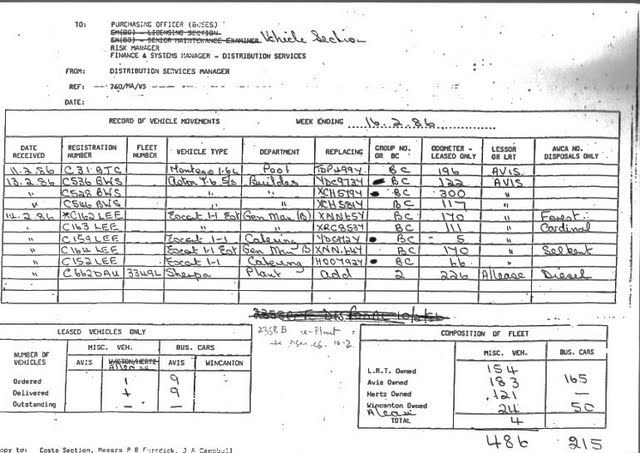 TO: PURCHASING OFFICER (BUSES)
EM(BO) - LICENSING SECTION
EM(BO) - SENIOR MAINTENANCE EXAMINER Vehicle Section
RISK MANAGER
FINANCE & SYSTEMS MANAGER - DISTRIBUTION SERVICES
FROM: DISTRIBUTION SERVICES MANAGER
REF: 760/MA/VS
DATE:
RECORD OF VEHICLE MOVEMENTS WEEK ENDING 16.2.86
DATE RECEIVED REGISTRATION NUMBER FLEET NUMBER VEHICLE TYPE DEPARTMENT REPLACING GROUP NO. OR BC ODOMETER - LEASED ONLY LESSOR OR LRT AWCA NO. DISPOSALS ONLY
11.2.86 C31 BTC Montego 1.6L Pool BC 196 AVIS
13.2.86 C536 BWS Astra 1.6 S/s Builder YDC973Y BC 122 AVIS
" C528 BWS " " XCH579Y BC 300 "
" C546 BWS " " XCH581Y BC 117 "
14.2.86 *C162 LEE Escort 1-1 Est Gen Man (B) XNN65Y BC 170 " Forest
" C163 LEE " " XRC853Y BC 111 " Cardinal
" C159 LEE Escort 1-1 Catering BC 5 "
" C164 LEE Escort 1.1 Est Gen Man (B) BC 170 " Selkent
" C152 LEE Escort 1-1 Catering BC 66 "
" C662DAU 3349L Sherpa Plant add 2 226 Allease Diesel
2358 B ex-Plant
LEASED VEHICLES ONLY
NUMBER OF VEHICLES MISC. VEH. BUS. CARS
AVIS AVIS WINCANTON
Ordered 1 9
Delivered 1 9
Outstanding - -
COMPOSITION OF FLEET
MISC. VEH. BUS. CARS
L.R.T. Owned 154
Avis Owned 183 165
Hertz Owned 121 -
Wincanton Owned 24 50
Alease
TOTAL 4
486 215
Copy to: Costs Section, Messrs P B Forodick, J A Campbell